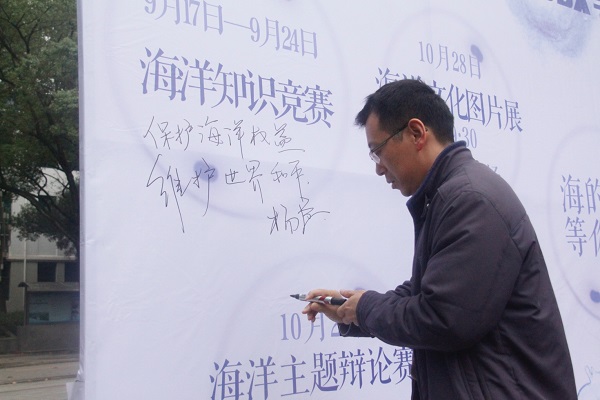 9月17日—9月24日
海洋知识竞赛
保护海洋权益
维护世界和平
10月28日
海洋文化图片展
:30
海的
等你
10月2
海洋主题辩论赛